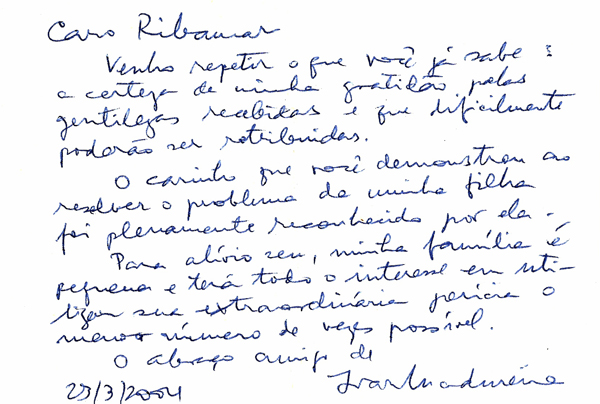 Caro Ribamar
Venho repetir o que você já sabe :
a certeza de minha gratidão pelas
gentilezas recebidas e que dificilmente
poderão ser retribuidas.
O carinho que você demonstrou ao
resolver o problema de minha filha
foi plenamente reconhecido por ela.
Para alívio seu, minha família é
pequena e terá todo o interesse em uti-
lizar sua extraordinária perícia o
menor número de vezes possível.
O abraço amigo de
29/3/2004 Ivan Madureira